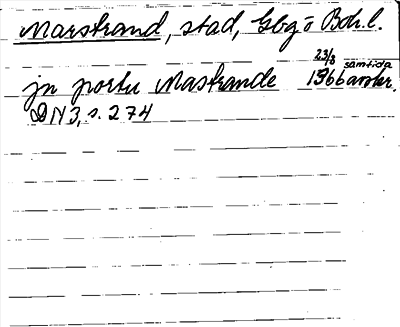 Marstrand, stad, Gbg o Boh.l.
23/8 samtida
jn portu Mastrande 1366 avskr.
DN 3, s. 274